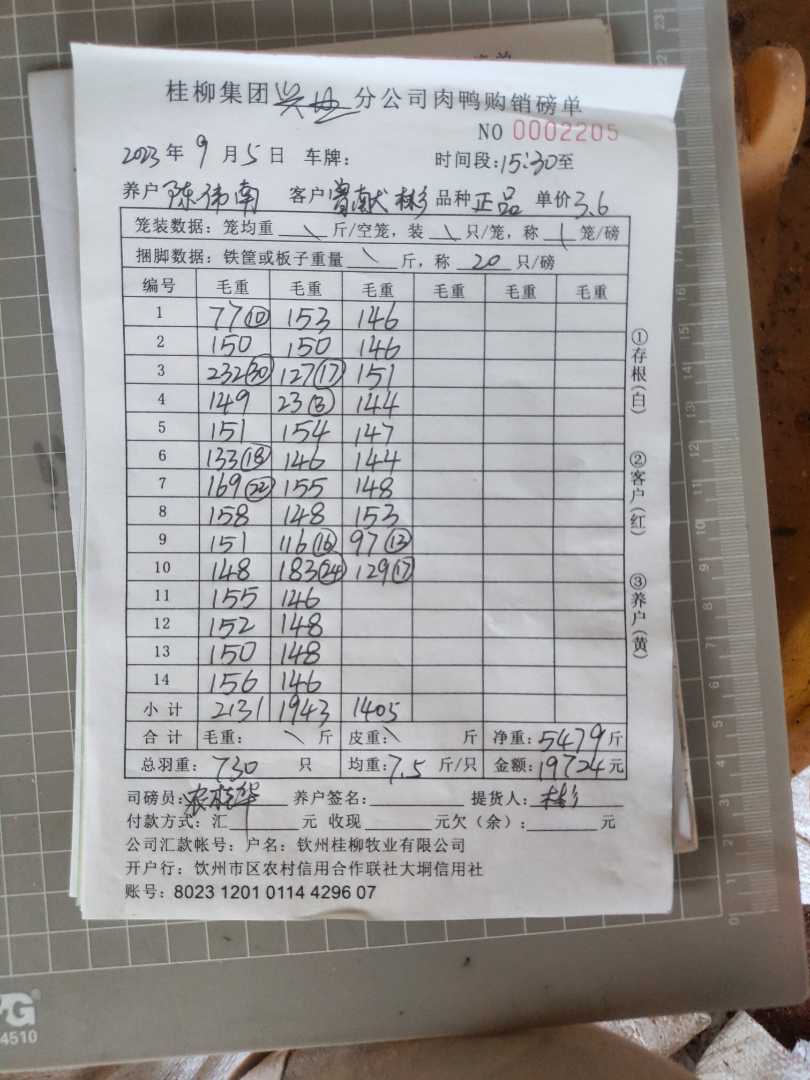 桂柳集团兴业分公司肉鸭购销磅单
NO 0002205
2023年9月5日 车牌: 时间段:15:30至
养户陈伟南 客户曾献彬 品种正品 单价3.6
笼装数据:笼均重\斤/空笼,装\只/笼,称\笼/磅
捆脚数据:铁筐或板子重量\斤,称20只/磅
编号 毛重 毛重 毛重 毛重 毛重 毛重
1 77⑩ 153 146
2 150 150 146
3 232㉚ 127⑰ 151
4 149 23③ 144
5 151 154 147
6 133⑱ 146 144
7 169㉒ 155 148
8 158 148 153
9 151 116⑯ 97⑬
10 148 183㉔ 129⑰
11 155 146
12 152 148
13 150 148
14 156 146
小计 2131 1943 1405
合计 毛重:\斤 皮重:\斤 净重:5479斤
总羽重:730只 均重:7.5斤/只 金额:19724元
司磅员: 养户签名: 提货人:彬
付款方式:汇 元 收现 元欠(余): 元
公司汇款帐号:户名:钦州桂柳牧业有限公司
开户行:钦州市区农村信用合作联社大垌信用社
账号:8023 1201 0114 4296 07
①存根(白)
②客户(红)
③养户(黄)
4510